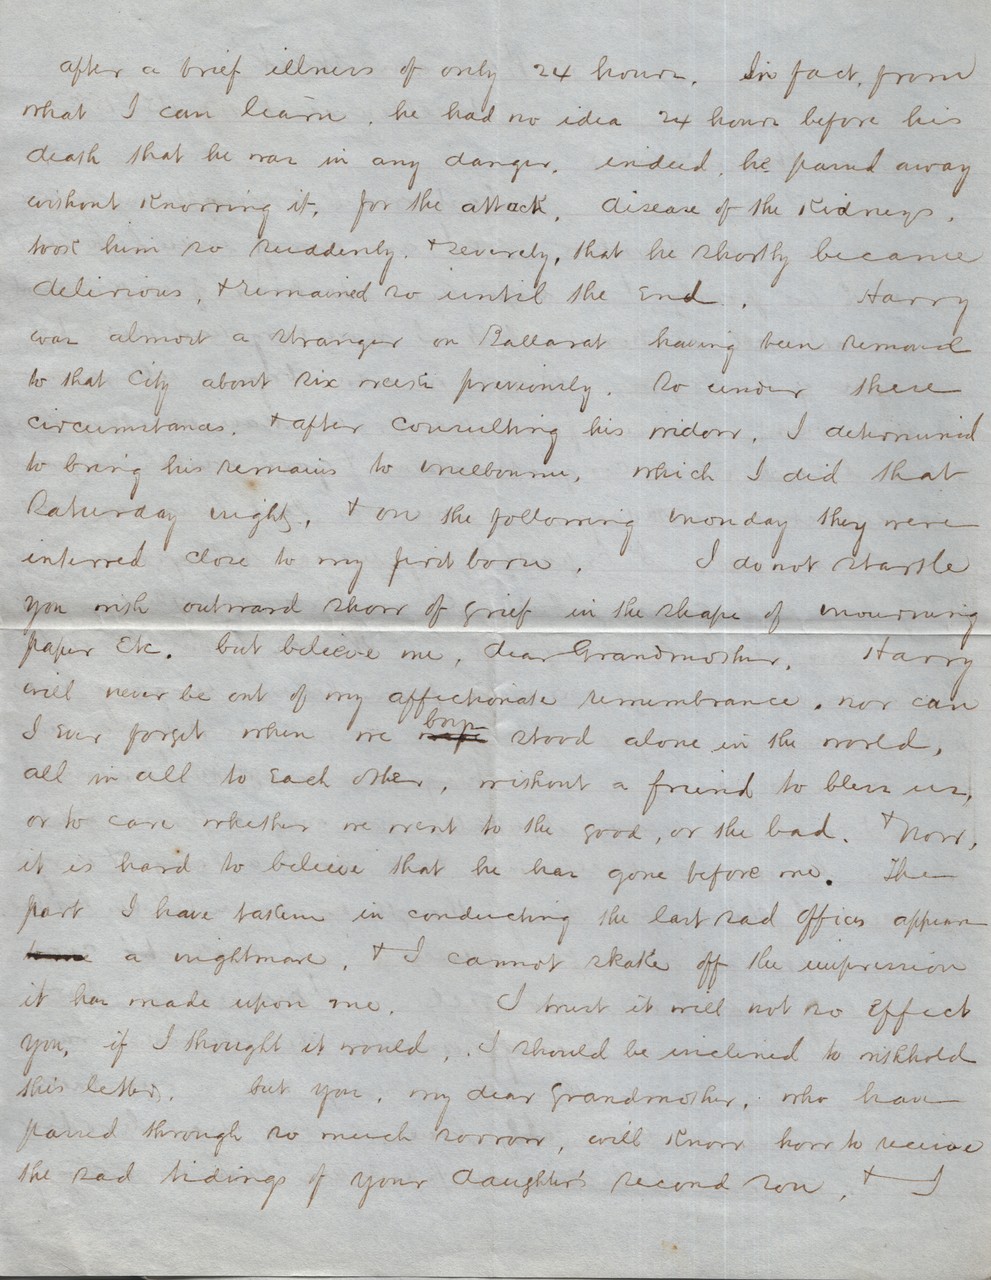 after a brief illness of only 24 hours. In fact, from
what I can learn, he had no idea 24 hours before his
death that he was in any danger, indeed, he passed away
without knowing it, for the attack, disease of the Kidneys,
took him so suddenly, & severely, that he shortly became
delirious, & remained so until the End. Harry
was almost a stranger on Ballarat having been removed
to that City about six weeks previously. So under these
circumstances, & after consulting his widow, I determined
to bring his remains to Melbourne, which I did that
Saturday night, & on the following Monday they were
interred close to my first born. I do not startle
you with outward show of grief in the shape of mourning
paper Etc. but believe me, dear Grandmother, Harry
will never be out of my affectionate remembrance, nor can
I Ever forget when we boys stood alone in the world,
all in all to Each other, without a friend to bless us,
or to care whether we went to the good, or the bad. & Now,
it is hard to believe that he has gone before me. The
part I have taken in conducting the last sad offices appears
a nightmare, & I cannot shake off the impression
it has made upon me. I trust it will not so Effect
you, if I thought it would, I should be inclined to withhold
this letter, but you, my dear Grandmother, who have
passed through so much sorrow, will Know how to receive
the sad tidings of your daughter's second son, & I